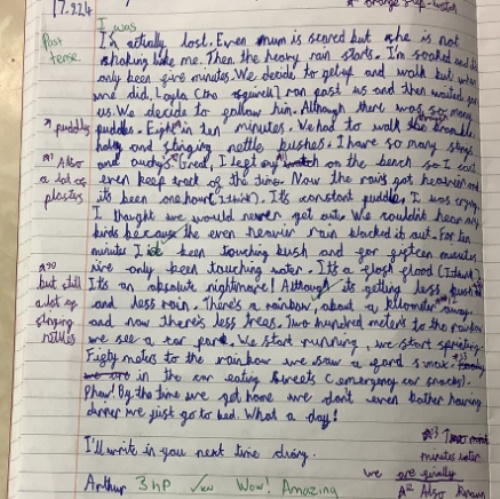 17.2.24
Orange flip-watch
I was
Past tense
I'm actially lost. Even mum is scared but she is not
shaking like me. Then the heavy rain starts. I'm soaked and it's
only been give minutes. We decide to get up and walk but when
we did, Layla (the squirrel) ran past us and then waited for
us. We decide to follow him. Although there was so many
puddles. Eight in ten minutes. We had to walk through bramble,
holly and stinging nettle bushes. I have so many stings
and and Great, I left my watch on the bench so I can't
even keep track of the time. Now the rain's got heavier and
its been one hour (I think). It's constant puddle. I was crying
I thought we would never get out. We couldn't hear any
birds because the even heavier rain blocked it out. For ten
minutes I been touching bush and for fifteen minutes
ive only been touching water. It's a flash flood (I think)
It's an absolute nightmare! Although its getting less bush
and less rain. There's a rainbow, about a kilometer away.
and now there's less trees. Two hundred meters to the rainbow
we see a car park. We start running, we start sprinting
Fifty meters to the rainbow we saw a ford s max.
we are in the car eating sweets (emergency car snacks).
Phew! By the time we got home we don't even bother having
dinner we just go to bed. What a day!
puddles
Also
a lot of
plasters
but still
a lot of
stinging
nettles
I'll write in you next time diary.
minutes later
we are finally
Arthur 3HP Wow! Amazing
Also